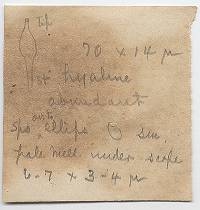 tip
70 x 14 µ
hyaline
abundant
spo ovate ellips sm.
pale mell. under scope
6-7 x 3-4 µ